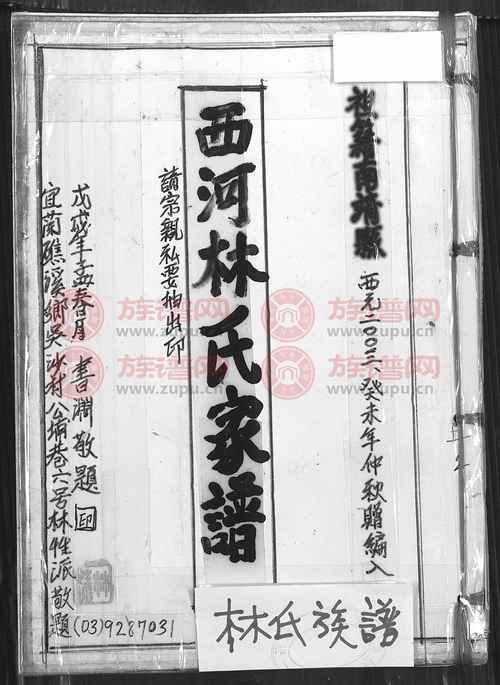 祖籍南靖縣
西元二00三癸未年仲秋贈編入
西河林氏家譜
請宗親私要抽出印
戊戌年孟春月 書淵敬題 印
宜蘭礁溪鄉吳沙村公埔巷六号林性派敬題
(03)9287031
林氏族譜
族谱网
www.zupu.cn
族谱网
www.zupu.cn
族谱网
www.zupu.cn
族谱网
www.zupu.cn